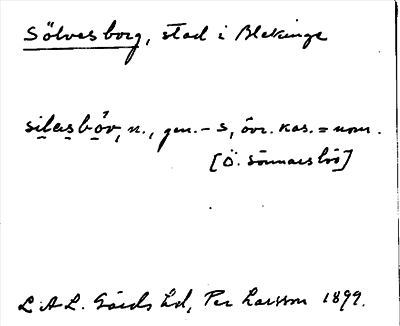 Sölvesborg, stad i Blekinge
silasbör, n., gen. - s, övr. kas. = nom.
[Ö.
L A L. Gärds hd, Per Larsson 1899.